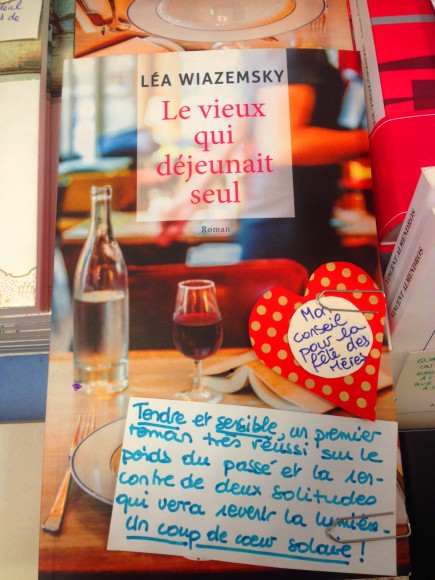 LÉA WIAZEMSKY
Le vieux
qui
déjeunait
seul
Roman
Mon
conseil
pour la
fête des
Mères
Tendre et sensible, un premier
roman très réussi sur le
poids du passé et la ren-
contre de deux solitudes
qui verra revenir la lumière.
Un coup de cœur solaire !
VINCENT ALMENDROS
VINCENT ALMENDROS